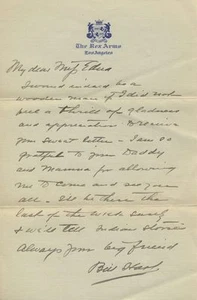 The Rex Arms
Los Angeles
My dear Miss Edna
I would indeed be a
wooden man if I did not
feel a thrill of gladness
and appreciation to receive
your sweet letter - I am so
grateful to your Daddy
and Mamma for allowing
me to come and see you
all. I'll be there the
last of the week
& we'll tell Indian stories
Always your big friend
Bill Hart